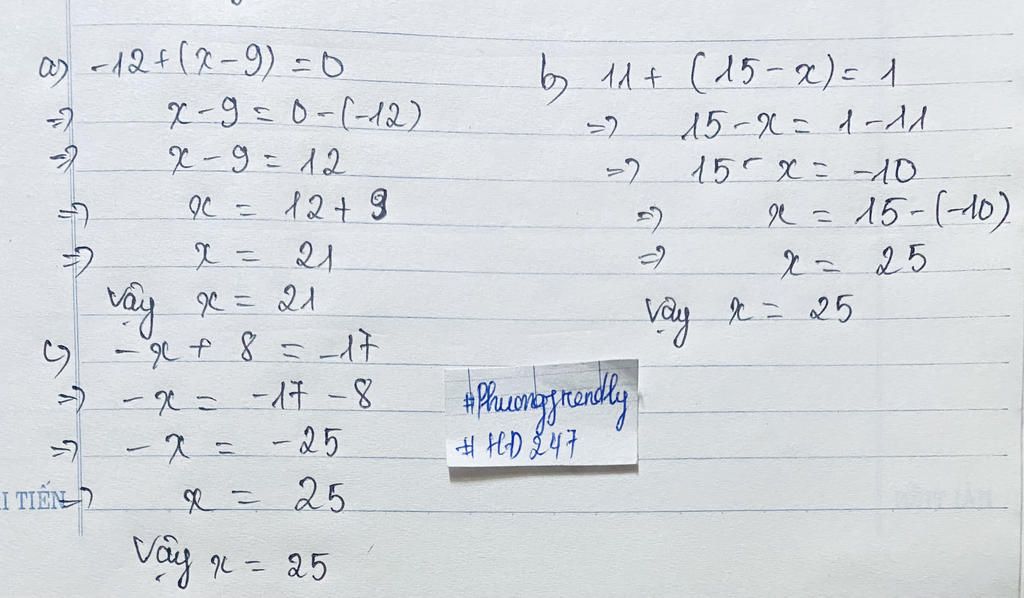 a) -12+(x-9)=0
=> x-9=0-(-12)
=> x-9=12
=> x = 12+9
=> x = 21
Vậy x = 21
b) 11+(15-x)=1
=> 15-x=1-11
=> 15-x=-10
=> x=15-(-10)
=> x=25
Vậy x = 25
c) -x+8=-17
=> -x=-17-8
=> -x=-25
=> x=25
Vậy x=25
#Phuongfrendly
#HD247
I TIẾN